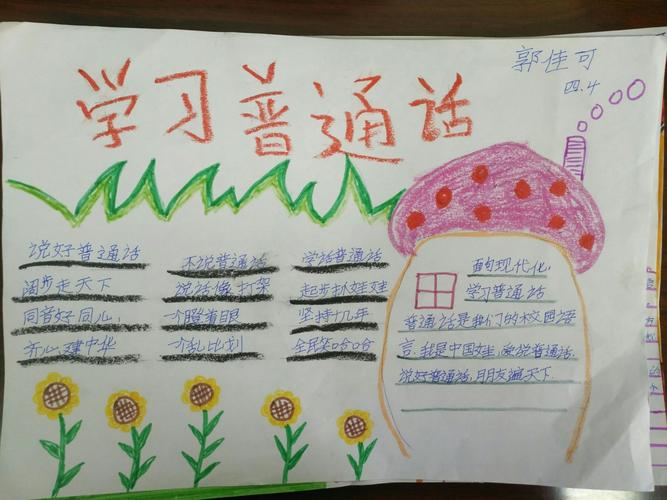 学习普通话
郭佳可
四.4
说好普通话
阔步走天下
同音好同心,
齐心建中华
不说普通话
说话像打架
一个瞪着眼
一个乱比划
学话普通话
起步扒娃娃
坚持十几年
全民笑哈哈
面向现代化,
学习普通话
普通话是我们的校园语
言.我是中国娃,爱说普通话.
说好普通话,朋友遍天下